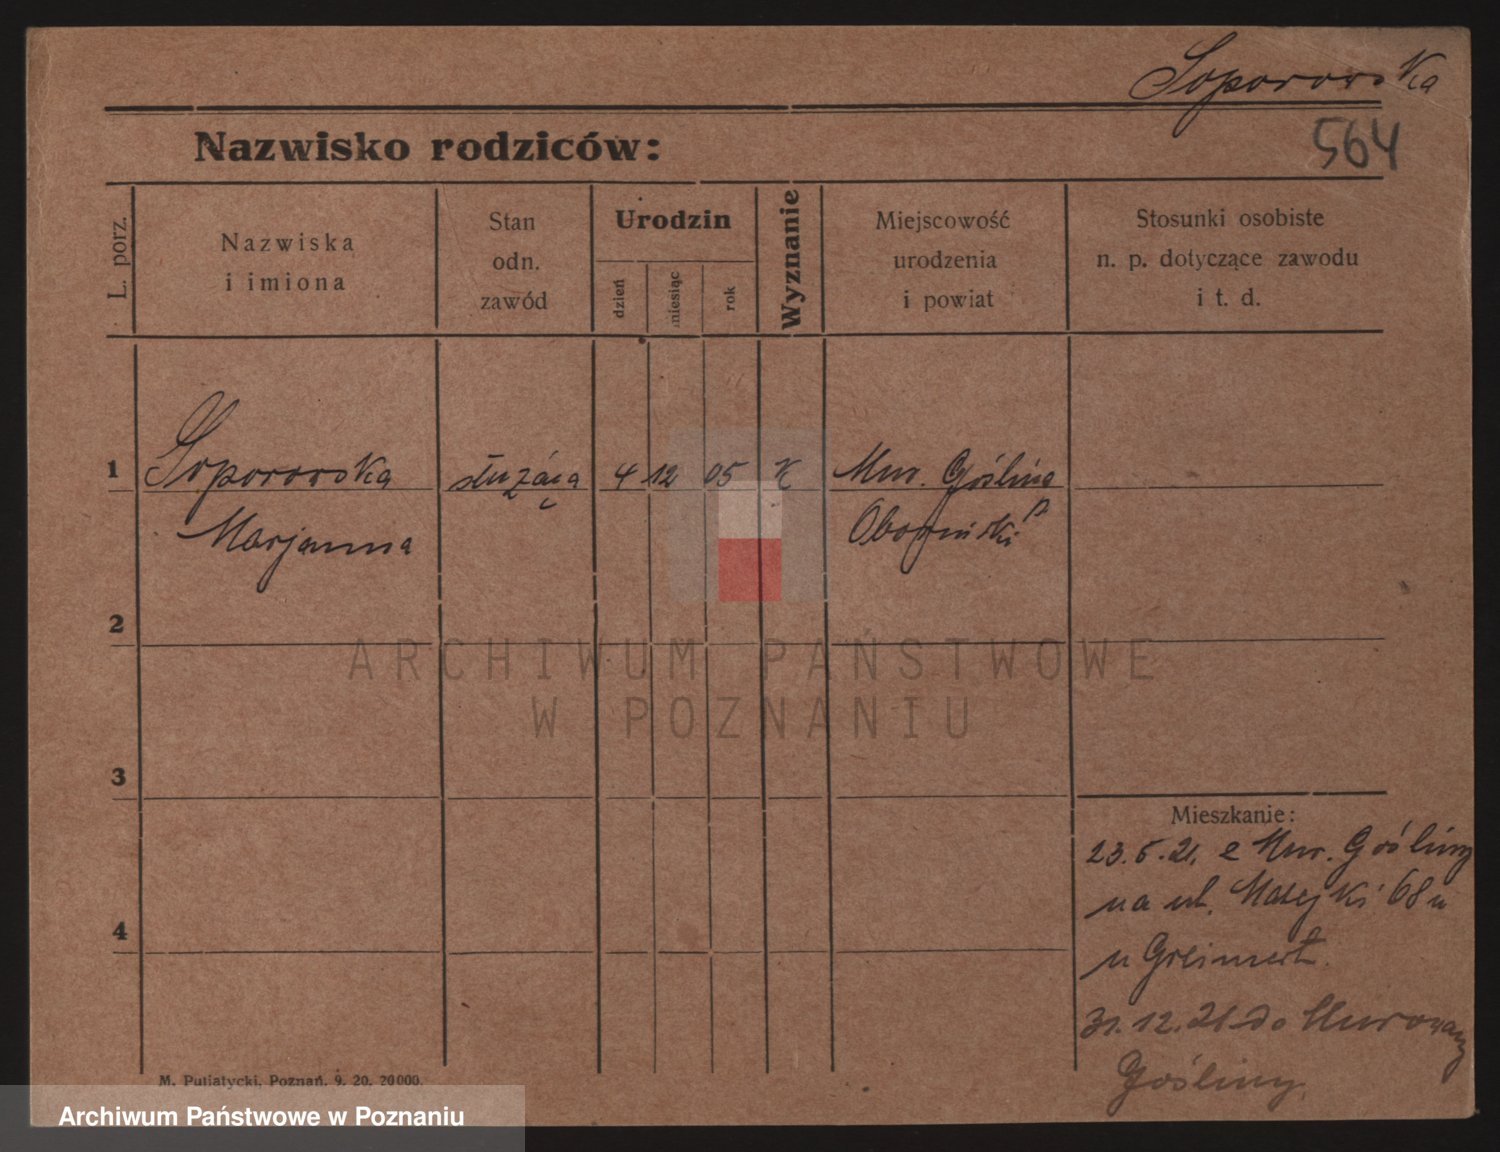 Soporowska
564
Nazwisko rodziców:
L. porz.
Nazwiska
i imiona
Stan
odn.
zawód
Urodzin
dzień
miesiąc
rok
Wyznanie
Miejscowość
urodzenia
i powiat
Stosunki osobiste
n. p. dotyczące zawodu
i t. d.
1
Soporowska służąca 4 12 05 K Mur. Goślina
Marjanna Obornicki
2
ARCHIWUM PAŃSTWOWE
W POZNANIU
3
4
Mieszkanie:
23.5.21. z Mur. Gośliny
na ul. Matejki 68
u Greinert.
31.12.21 do Murowany
Gośliny.
M. Putiatycki, Poznań. 9. 20. 20000.
Archiwum Państwowe w Poznaniu